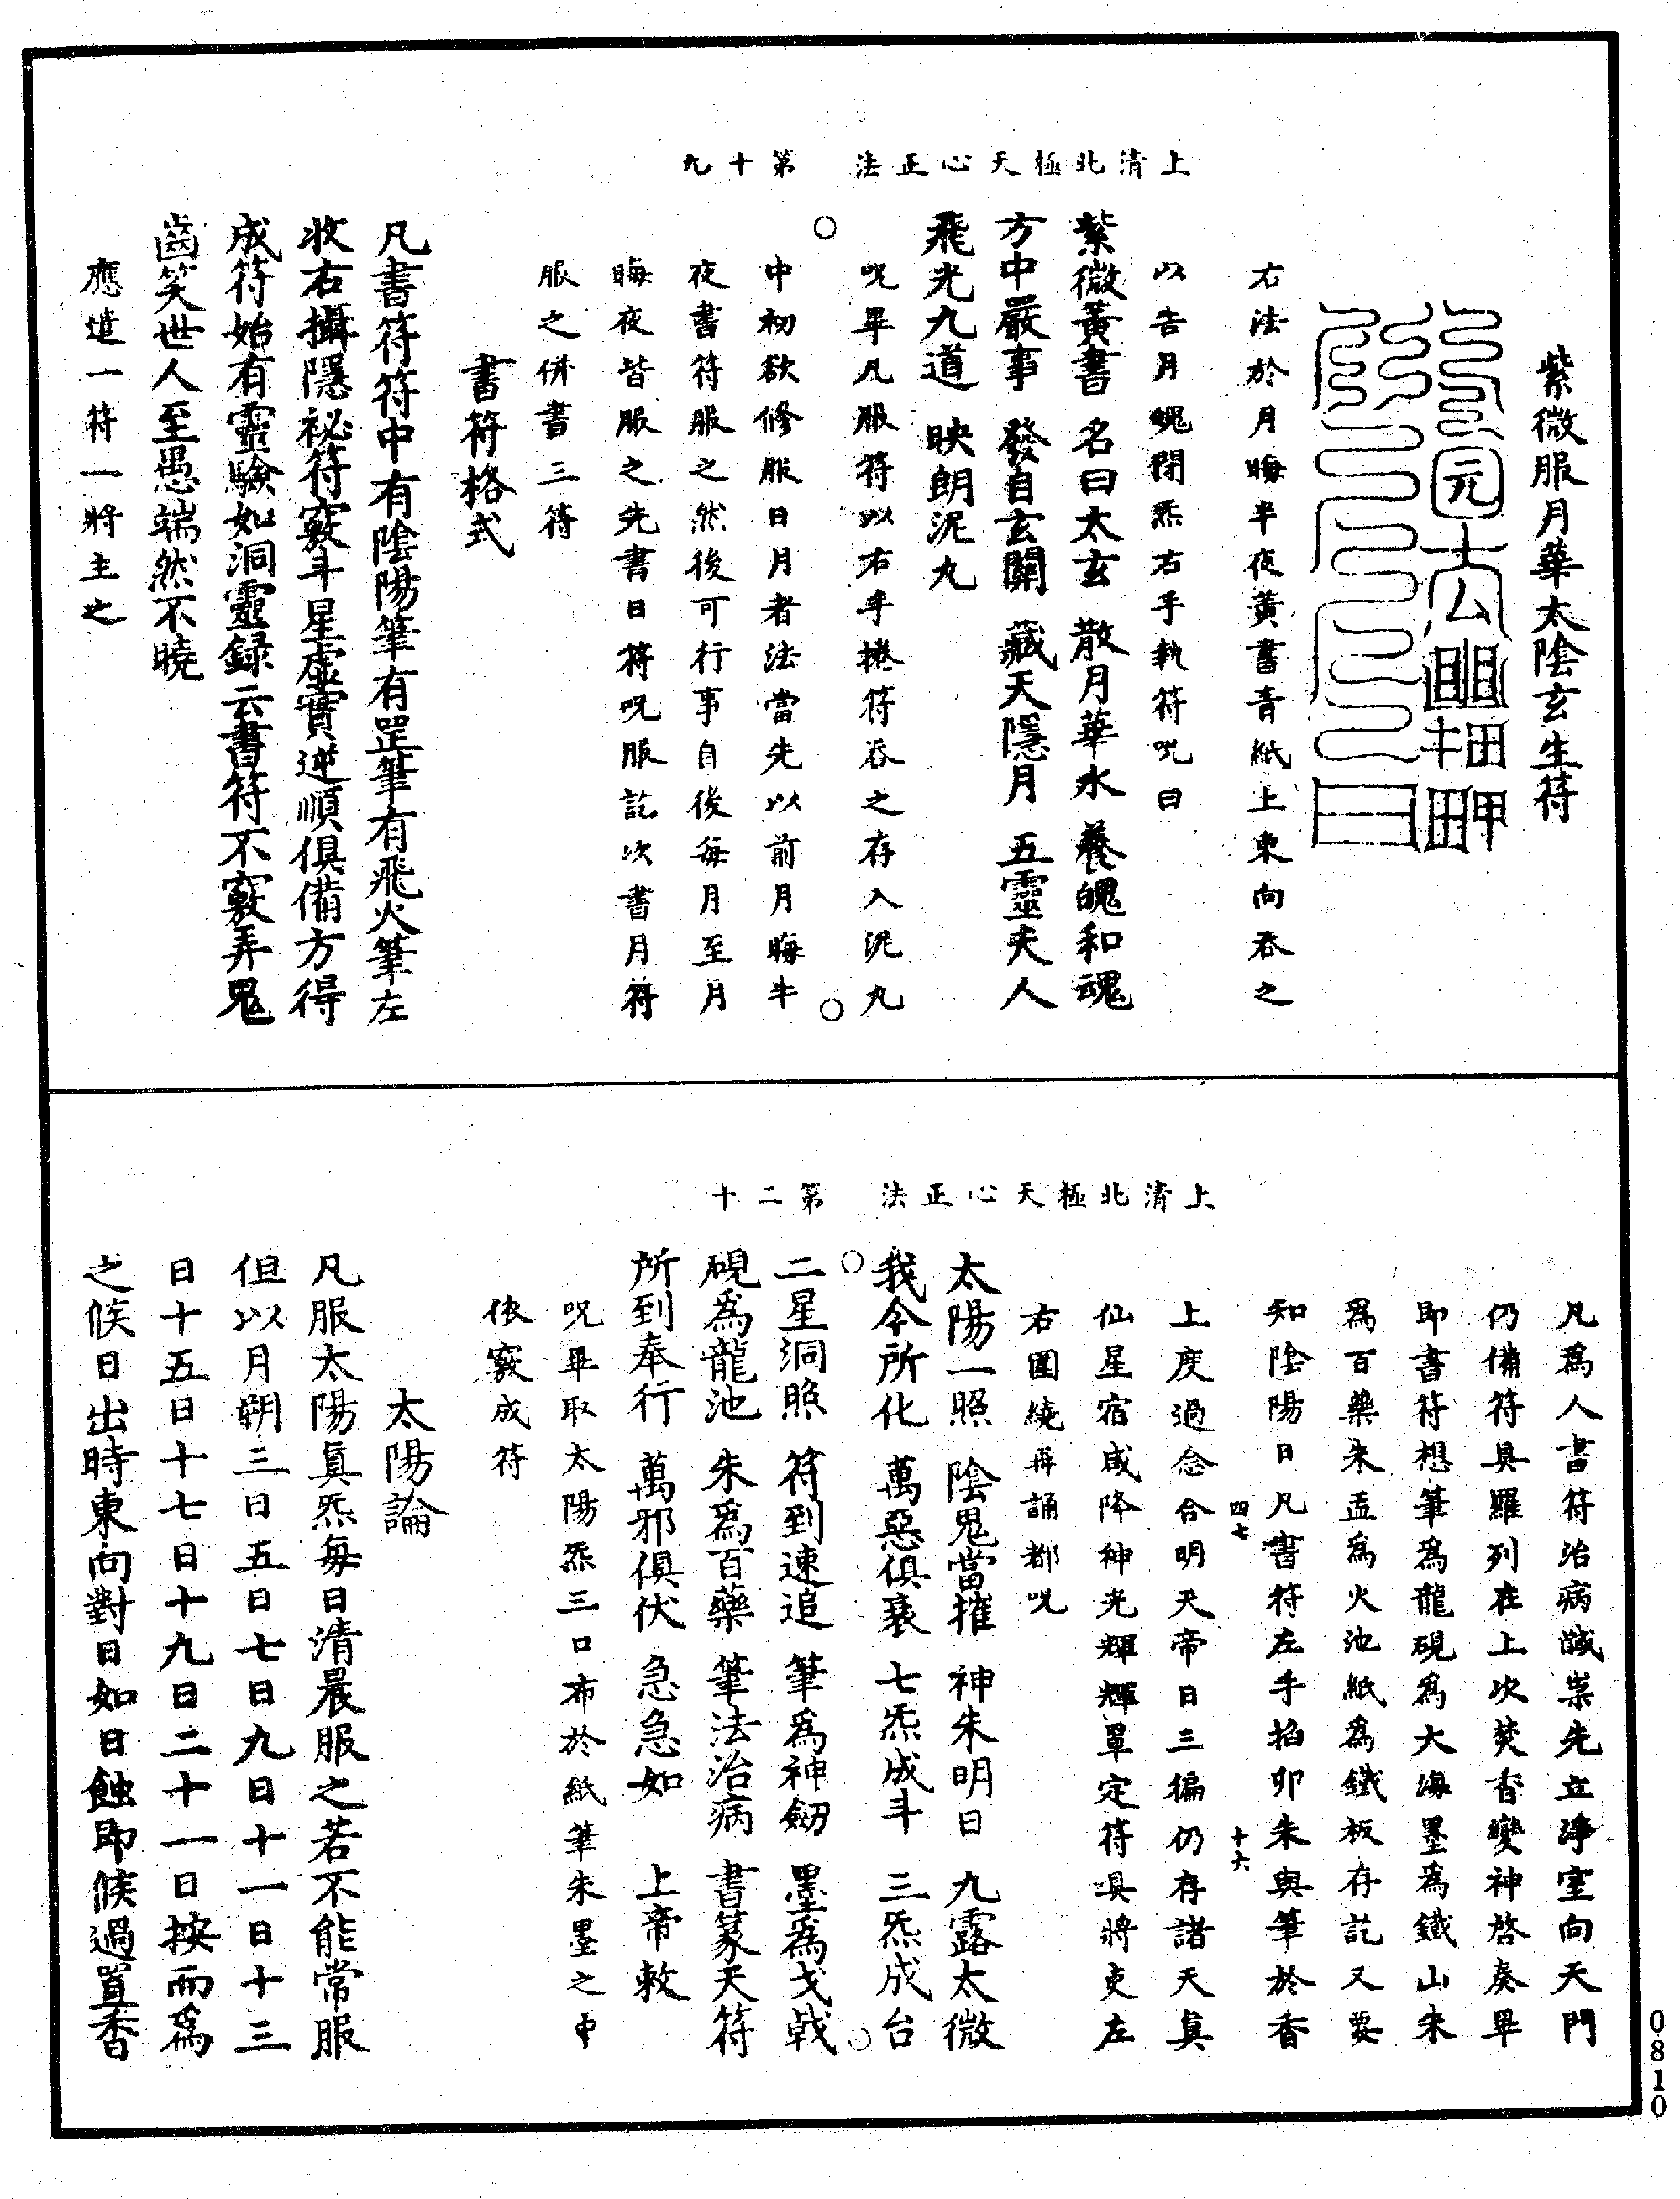 上清北極天心正法　第十九
紫微服月華太陰玄生符
右法於月晦半夜黃書青紙上東向吞之
以告月魄閉炁右手執符咒曰
紫微黃書　名曰太玄　散月華水　養魄和魂
方中嚴事　發自玄關　藏天隱月　五靈夾人
飛光九道　映朗泥丸
咒畢凡服符以右手捲符吞之存入泥丸
中初欲修服日月者法當先以前月晦半
夜書符服之然後可行事自後每月至月
晦夜皆服之先書日符咒服訖次書月符
服之併書三符
書符格式
凡書符符中有陰陽筆有罡筆有飛火筆左
收右攝隱祕符竅斗星虛實逆順俱備方得
成符始有靈驗如洞靈録云書符不竅弄鬼
齒笑世人至愚端然不曉
應遣一符一將主之
上清北極天心正法　第二十
凡爲人書符治病馘祟先立淨室向天門
仍備符具羅列在上次焚香變神啓奏畢
即書符想筆爲龍硯爲大海墨爲鐵山朱
爲百藥朱盂爲火池紙爲鐵板存訖又要
知陰陽日凡書符左手掐卯朱與筆於香
四七　十六
上度過念合明天帝日三徧仍存諸天真
仙星宿咸降神光輝輝罩定符具將吏左
右圍繞再誦都咒
太陽一照　陰鬼當摧　神朱明日　九露太微
我今所化　萬惡俱衰　七炁成斗　三炁成台
二星洞照　符到速追　筆爲神劒　墨爲戈戟
硯爲龍池　朱爲百藥　筆法治病　書篆天符
所到奉行　萬邪俱伏　急急如　上帝敕
咒畢取太陽炁三口布於紙筆朱墨之中
依竅成符
太陽論
凡服太陽真炁每日清晨服之若不能常服
但以月朔三日五日七日九日十一日十三
日十五日十七日十九日二十一日按而爲
之候日出時東向對日如日蝕即候過置香
0810